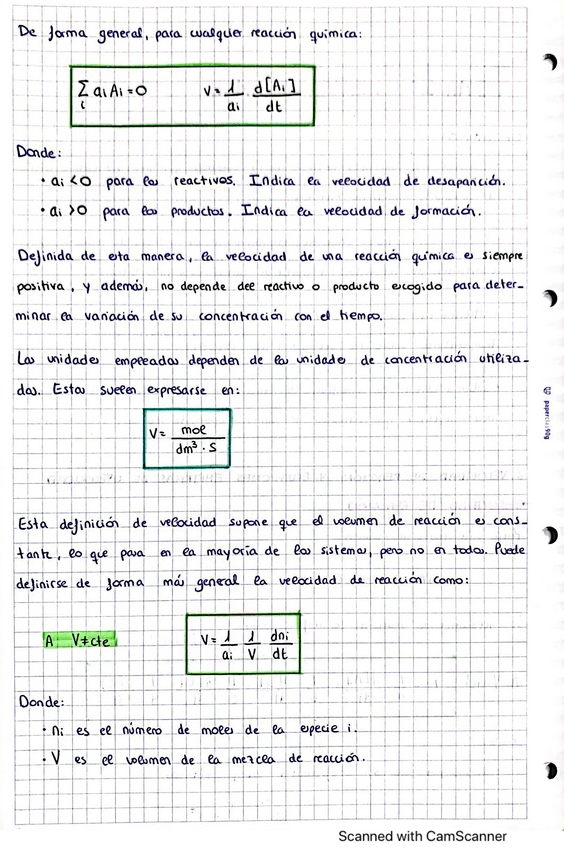 De forma general, para cualquier reacción química:
∑ᵢ aᵢAᵢ = 0    v = 1/aᵢ d[Aᵢ]/dt
Donde:
• aᵢ < 0 para los reactivos. Indica la velocidad de desaparición.
• aᵢ > 0 para los productos. Indica la velocidad de formación.
Definida de esta manera, la velocidad de una reacción química es siempre
positiva, y además, no depende del reactivo o producto escogido para deter-
minar la variación de su concentración con el tiempo.
Las unidades empleadas dependen de las unidades de concentración utiliza-
das. Estas suelen expresarse en:
v = mol / dm³ · s
Esta definición de velocidad supone que el volumen de reacción es cons-
tante, lo que pasa en la mayoría de los sistemas, pero no en todos. Puede
definirse de forma más general la velocidad de reacción como:
A V ≠ cte    v = 1/aᵢ 1/V dnᵢ/dt
Donde:
• nᵢ es el número de moles de la especie i.
• V es el volumen de la mezcla de reacción.
Scanned with CamScanner